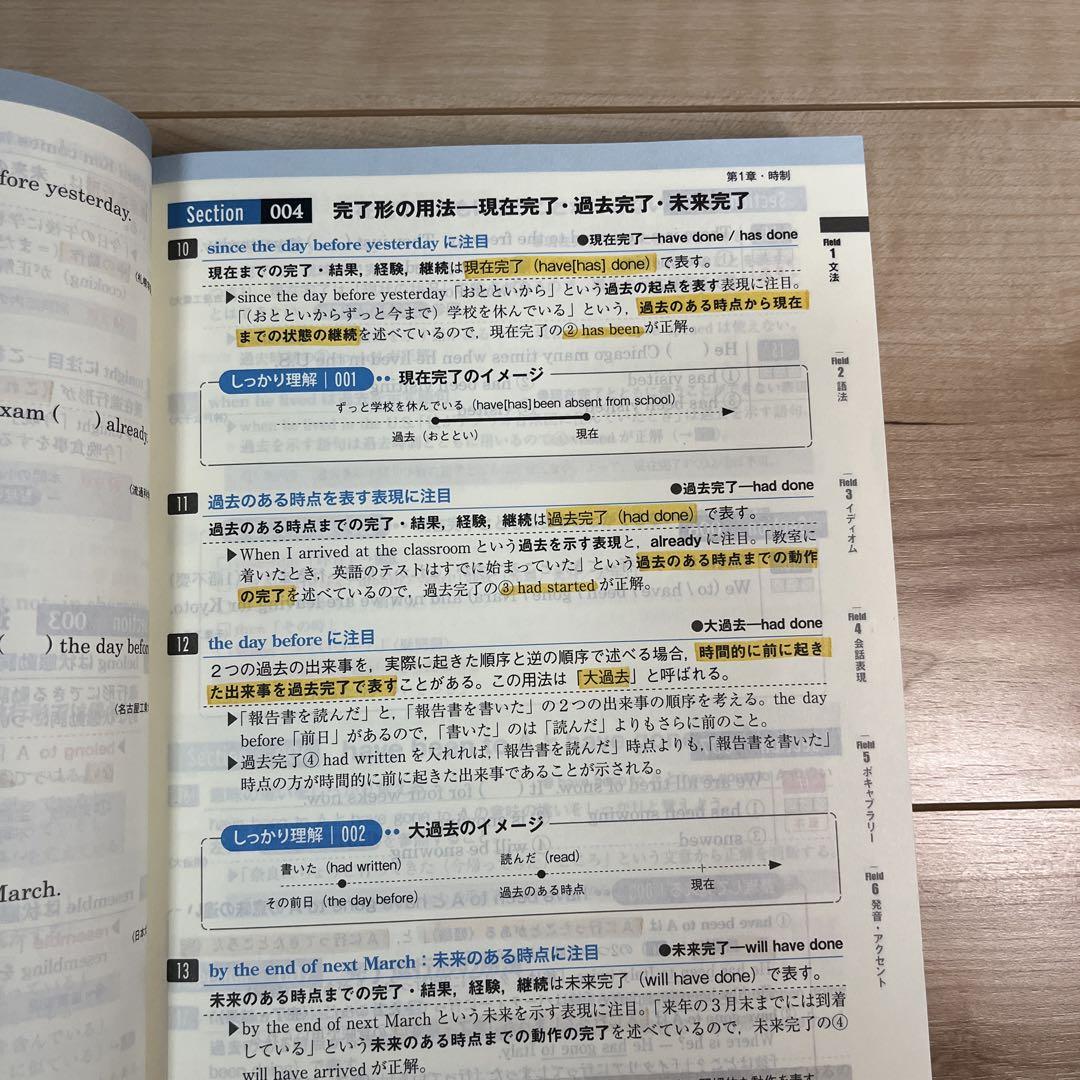 fore yesterday.
xam (　　) already.
(　　) the day befor
(名古屋工業
March.
第1章・時制
Section 004 完了形の用法—現在完了・過去完了・未来完了
10 since the day before yesterday に注目 ●現在完了—have done / has done
現在までの完了・結果，経験，継続は現在完了（have[has] done）で表す。
▶since the day before yesterday「おとといから」という過去の起点を表す表現に注目。
「（おとといからずっと今まで）学校を休んでいる」という，過去のある時点から現在
までの状態の継続を述べているので，現在完了の② has been が正解。
しっかり理解 | 001 •• 現在完了のイメージ
ずっと学校を休んでいる（have[has] been absent from school）
過去（おととい） 現在
11 過去のある時点を表す表現に注目 ●過去完了—had done
過去のある時点までの完了・結果，経験，継続は過去完了（had done）で表す。
▶When I arrived at the classroom という過去を示す表現と，already に注目。「教室に
着いたとき，英語のテストはすでに始まっていた」という過去のある時点までの動作
の完了を述べているので，過去完了の③ had started が正解。
12 the day before に注目 ●大過去—had done
２つの過去の出来事を，実際に起きた順序と逆の順序で述べる場合，時間的に前に起き
た出来事を過去完了で表すことがある。この用法は「大過去」と呼ばれる。
▶「報告書を読んだ」と，「報告書を書いた」の２つの出来事の順序を考える。the day
before「前日」があるので，「書いた」のは「読んだ」よりもさらに前のこと。
▶過去完了④ had written を入れれば，「報告書を読んだ」時点よりも，「報告書を書いた」
時点の方が時間的に前に起きた出来事であることが示される。
しっかり理解 | 002 •• 大過去のイメージ
書いた（had written） 読んだ（read）
その前日（the day before） 過去のある時点 現在
13 by the end of next March：未来のある時点に注目 ●未来完了—will have done
未来のある時点までの完了・結果，経験，継続は未来完了（will have done）で表す。
▶by the end of next March という未来を示す表現に注目。「来年の３月末までには到着
している」という未来のある時点までの動作の完了を述べているので，未来完了の④
will have arrived が正解。
Field 1 文法
Field 2 語法
Field 3 イディオム
Field 4 会話表現
Field 5 ボキャブラリー
Field 6 発音・アクセント